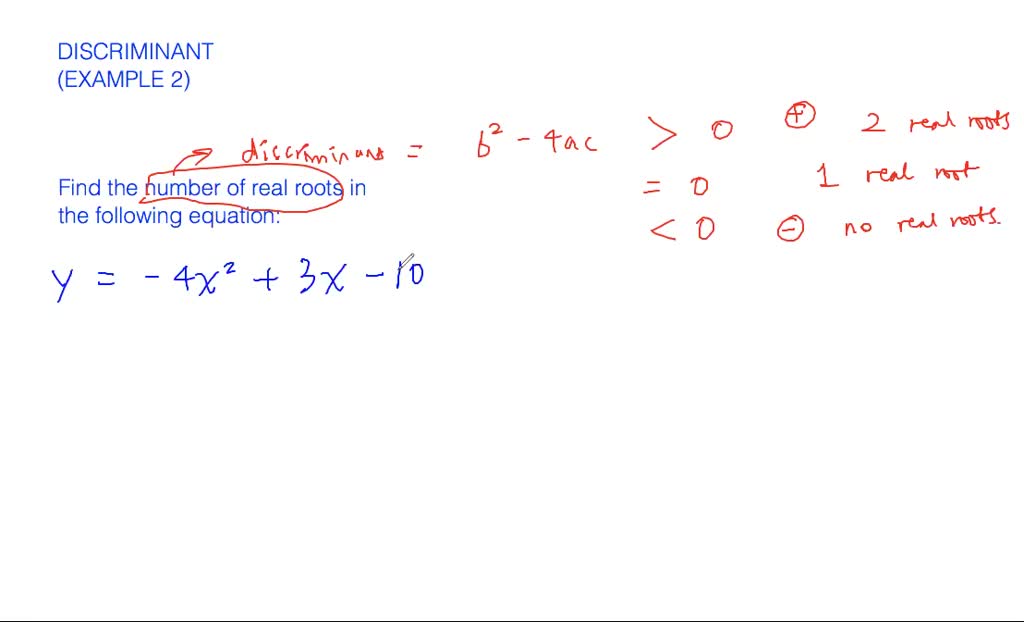 DISCRIMINANT
(EXAMPLE 2)
discriminant = b² - 4ac > 0 ⊕ 2 real roots
= 0 1 real root
< 0 ⊖ no real roots.
Find the number of real roots in
the following equation:
y = - 4x² + 3x - 10